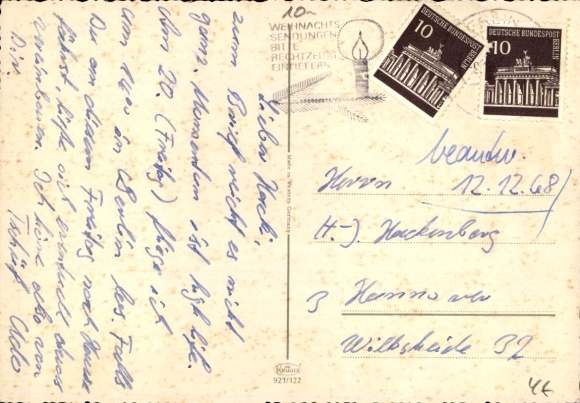 10.-
WEIHNACHTS
SENDUNGEN
BITTE
RECHTZEITIG
EINLIEFERN
DEUTSCHE BUNDESPOST
BERLIN
10
DEUTSCHE BUNDESPOST
BERLIN
10
Lieber Hacki,
zum Brief reicht es nicht
ganz. Momentan ist high life.
Am 20. (Freitag) fliege ich
von in Berlin los. Falls
Du an diesem Freitag nach Hause
fährst ließe sich eventuell etwas
Ich höre also von
Dir.
Tschüß
Made in Western Germany
Krüger
921/122
beantw.
12.12.68
Herrn
H.-J. Hackenberg
3 Hannover
32
4€